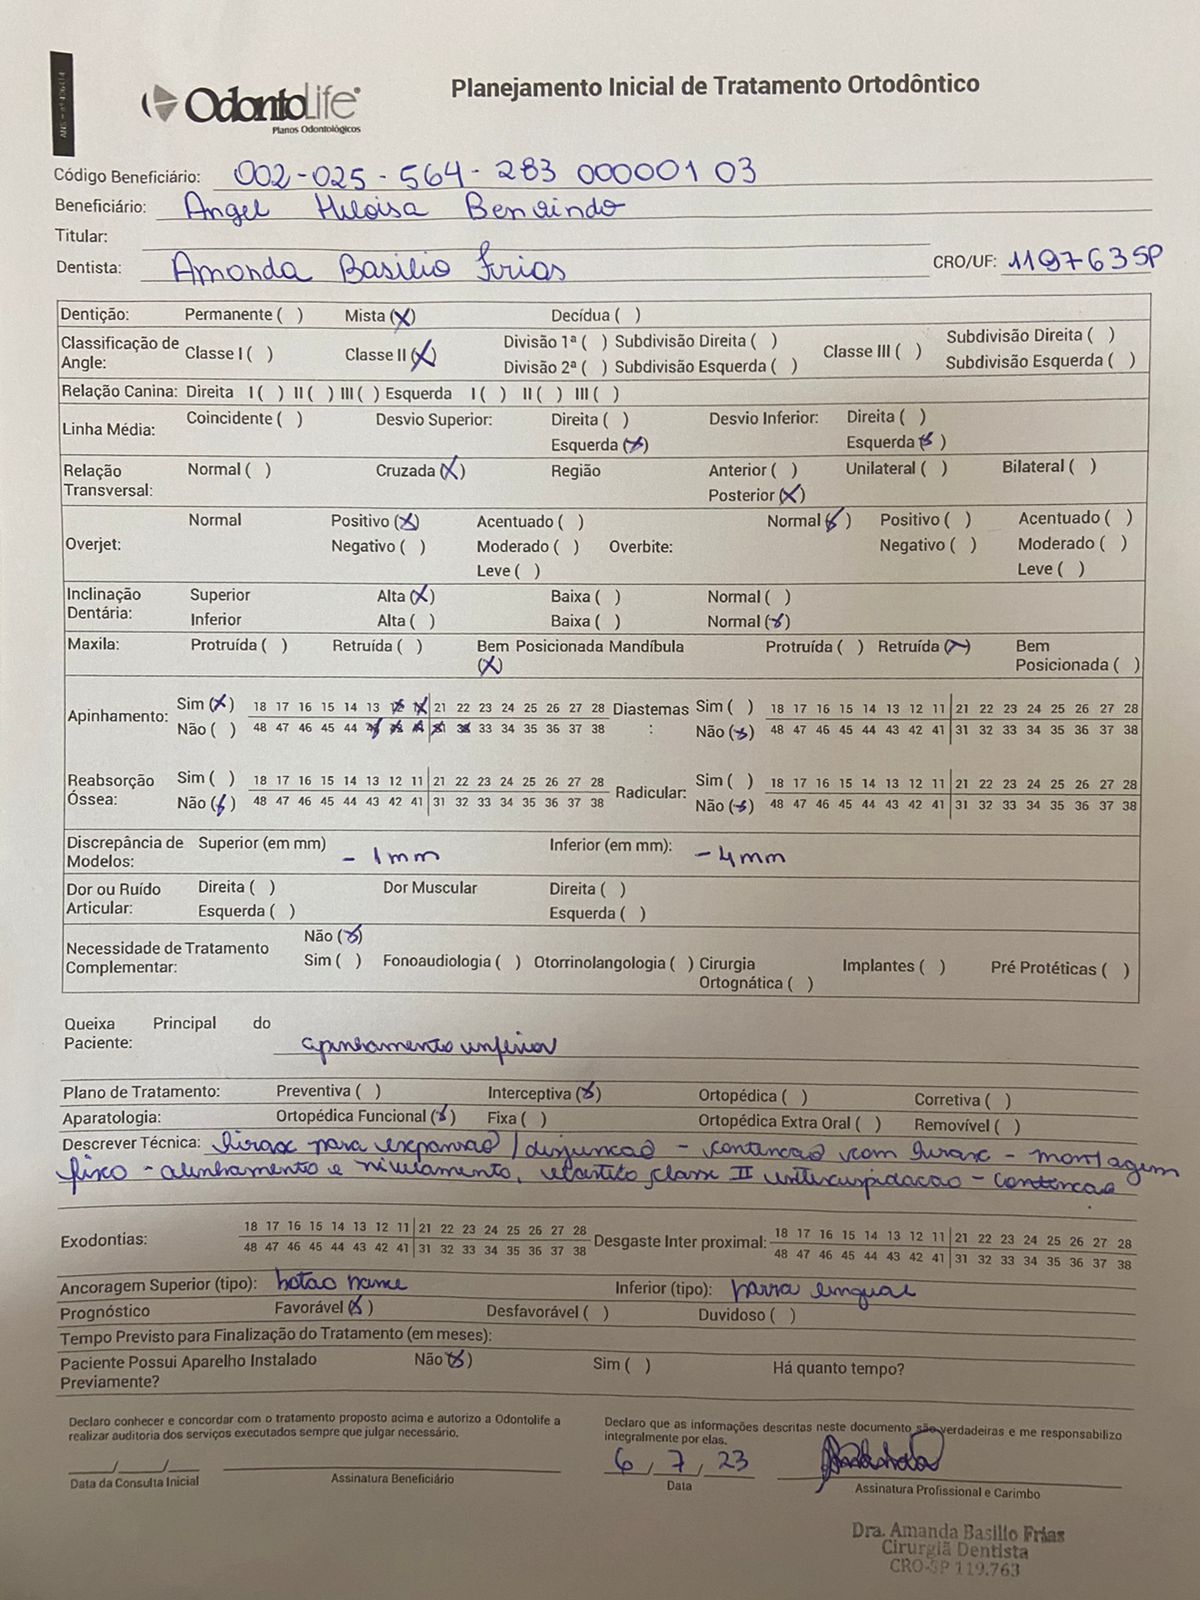 ANS - nº 406414
OdontoLife®
Planos Odontológicos
Planejamento Inicial de Tratamento Ortodôntico
Código Beneficiário: 002-025-564-283 000001 03
Beneficiário: Angel Heloisa Benvindo
Titular:
Dentista: Amanda Basilio Frias CRO/UF: 119763SP
Dentição: Permanente ( ) Mista (X) Decídua ( )
Classificação de Angle: Classe I ( ) Classe II (X) Divisão 1ª ( ) Subdivisão Direita ( ) Divisão 2ª ( ) Subdivisão Esquerda ( ) Classe III ( ) Subdivisão Direita ( ) Subdivisão Esquerda ( )
Relação Canina: Direita I ( ) II ( ) III ( ) Esquerda I ( ) II ( ) III ( )
Linha Média: Coincidente ( ) Desvio Superior: Direita ( ) Desvio Inferior: Direita ( )
Esquerda (X) Esquerda (X)
Relação Transversal: Normal ( ) Cruzada (X) Região Anterior ( ) Unilateral ( ) Bilateral ( )
Posterior (X)
Normal Positivo (X) Acentuado ( ) Normal (X) Positivo ( ) Acentuado ( )
Overjet: Negativo ( ) Moderado ( ) Overbite: Negativo ( ) Moderado ( )
Leve ( ) Leve ( )
Inclinação Dentária: Superior Alta (X) Baixa ( ) Normal ( )
Inferior Alta ( ) Baixa ( ) Normal (X)
Maxila: Protruída ( ) Retruída ( ) Bem Posicionada (X) Mandíbula Protruída ( ) Retruída (X) Bem Posicionada ( )
Apinhamento: Sim (X) 18 17 16 15 14 13 12 11 21 22 23 24 25 26 27 28 Diastemas: Sim ( ) 18 17 16 15 14 13 12 11 21 22 23 24 25 26 27 28
Não ( ) 48 47 46 45 44 43 42 41 31 32 33 34 35 36 37 38 Não (X) 48 47 46 45 44 43 42 41 31 32 33 34 35 36 37 38
Reabsorção Óssea: Sim ( ) 18 17 16 15 14 13 12 11 21 22 23 24 25 26 27 28 Radicular: Sim ( ) 18 17 16 15 14 13 12 11 21 22 23 24 25 26 27 28
Não (X) 48 47 46 45 44 43 42 41 31 32 33 34 35 36 37 38 Não (X) 48 47 46 45 44 43 42 41 31 32 33 34 35 36 37 38
Discrepância de Modelos: Superior (em mm) - 1mm Inferior (em mm): - 4mm
Dor ou Ruído Articular: Direita ( ) Dor Muscular Direita ( )
Esquerda ( ) Esquerda ( )
Necessidade de Tratamento Complementar: Não (X)
Sim ( ) Fonoaudiologia ( ) Otorrinolangologia ( ) Cirurgia Ortognática ( ) Implantes ( ) Pré Protéticas ( )
Queixa Principal do Paciente: apinhamento inferior
Plano de Tratamento: Preventiva ( ) Interceptiva (X) Ortopédica ( ) Corretiva ( )
Aparatologia: Ortopédica Funcional (X) Fixa ( ) Ortopédica Extra Oral ( ) Removível ( )
Descrever Técnica: hirax para expansão / disjuncao - contencao com hirax - montagem
fixo - alinhamento e nivelamento, elastico classe II intercuspidacao - contencao
Exodontias: 18 17 16 15 14 13 12 11 21 22 23 24 25 26 27 28 Desgaste Inter proximal: 18 17 16 15 14 13 12 11 21 22 23 24 25 26 27 28
48 47 46 45 44 43 42 41 31 32 33 34 35 36 37 38 48 47 46 45 44 43 42 41 31 32 33 34 35 36 37 38
Ancoragem Superior (tipo): botao nance Inferior (tipo): barra lingual
Prognóstico Favorável (X) Desfavorável ( ) Duvidoso ( )
Tempo Previsto para Finalização do Tratamento (em meses):
Paciente Possui Aparelho Instalado Previamente? Não (X) Sim ( ) Há quanto tempo?
Declaro conhecer e concordar com o tratamento proposto acima e autorizo a Odontolife a
realizar auditoria dos serviços executados sempre que julgar necessário.
Declaro que as informações descritas neste documento são verdadeiras e me responsabilizo
integralmente por elas.
___/___/___ 6 / 7 / 23
Data da Consulta Inicial Assinatura Beneficiário Data Assinatura Profissional e Carimbo
Dra. Amanda Basilio Frias
Cirurgiã Dentista
CRO-SP 119.763